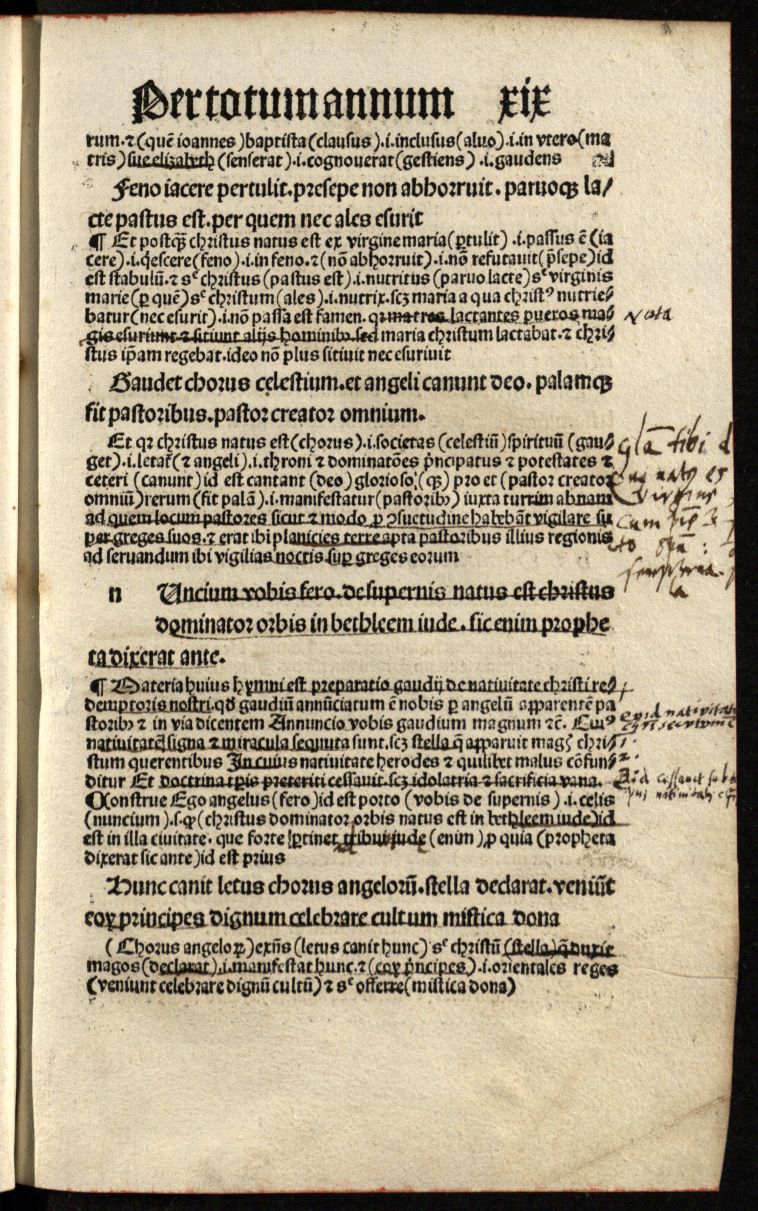 Per totum annum xix
rum.⁊(quē ioannes)baptista(clausus).i.inclusus(aluo).i.in vtero(ma
tris)sue elizabeth (senserat).i.cognouerat(gestiens) .i.gaudens
Feno iacere pertulit.presepe non abhorruit. paruoqꝫ la/
cte pastus est.per quem nec ales esurit
¶ Et postqꝫ christus natus est ex virgine maria(ꝑtulit) .i.passus ē (ia
cere).i.q̇escere(feno).i.in feno.⁊(nō abhorruit).i.nō refutauit(p̄sepe)id
est stabulū.⁊ sᶜ christus (pastus est).i.nutritus (paruo lacte) sᶜ virginis
marie(ꝑ quē)sᶜ christum(ales).i.nutrix.scꝫ maria a qua christꝰ nutrie/
batur(nec esurit).i.nō passa est famen. q matres lactantes pueros ma/
gis esuriunt ⁊ sitiunt alijs hominibꝫ.sed maria christum lactabat.⁊ chri/
stus ip̄am regebat.ideo nō plus sitiuit nec esuriuit
Nota
Gaudet chorus celestium.et angeli canunt deo. palamqꝫ
fit pastoribus.pastor creator omnium.
Et qꝛ christus natus est(chorus).i.societas (celestiū)spirituū (gau/
get).i.letat᷑(⁊ angeli).i.throni ⁊ dominatōes p̄ncipatus ⁊ potestates ⁊
ceteri (canunt) id est cantant (deo) glorioso.(qꝫ) pro et (pastor creator
omniū)rerum (fit palā).i.manifestatur(pastoribꝫ) iuxta turrim ab nam
ad quem locum pastores sicut ⁊ modo ꝑ ꝯsuetudinē habebāt vigilare su
per greges suos.⁊ erat ibi planicies terre apta pastoribus illius regionis
ad seruandum ibi vigilias noctis suꝑ greges eorum
gl̄a tibi d
n̄e natꝰ es
virgine
cum
sempiterna
n Uncium vobis fero.de supernis natus est christus
dominator orbis in bethleem iude.sic enim prophe
ta dixerat ante.
¶ Materia huius hymni est preparatio gaudij de natiuitate christi re/
demptoris nostri.qd gaudiū annūciatum ē nobis ꝑ angelū apparentē pa
storibꝫ ⁊ in via dicentem Annuncio vobis gaudium magnum ⁊c̄. Cuiꝰ
natiuitatē signa ⁊ miracula sequuta sunt.scꝫ stella q̄ apparuit magꝭ chri/
stum querentibus In cuius natiuitate herodes ⁊ quilibet malus cōfun/
ditur Et doctrina tp̄is preteriti cessauit.scꝫ idolatria ⁊ sacrificia vana.
Construe Ego angelus (fero)id est porto (vobis de supernis) .i.celis
(nuncium).s.ꝙ(christus dominator orbis natus est in bethleem iude)id
est in illa ciuitate. que forte ꝑtinet tribui iude (enim) ꝓ quia (propheta
dixerat sic ante)id est prius
Hunc canit letus chorus angelorū.stella declarat.veniūt
eoꝝ principes dignum celebrare cultum mistica dona
(Chorus angeloꝝ) exn̄s (letus canit hunc) sᶜ christū (stella)q̄ duxit
magos(declarat).i.manifestat hunc.⁊(eoꝝ p̄ncipes).i.orientales reges
(veniunt celebrare dignū cultū) ⁊ sᶜ offerre(mistica dona)